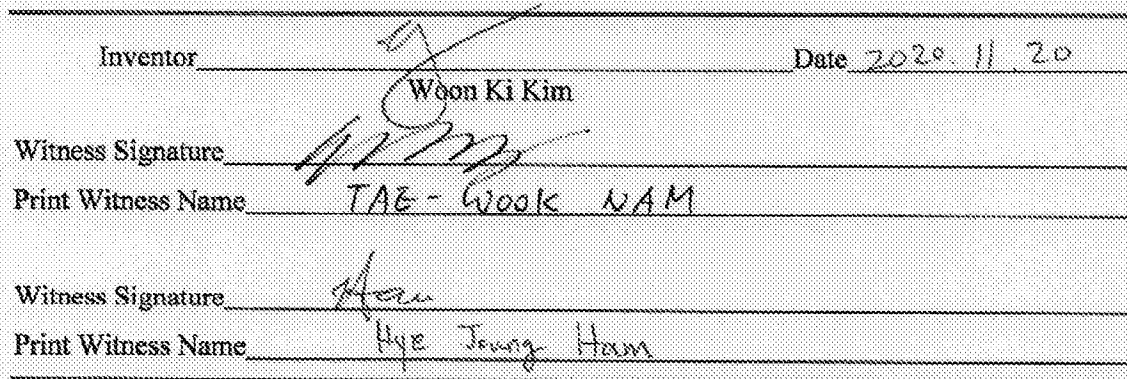 Inventor Date 2020. 11. 20
Woon Ki Kim
Witness Signature
Print Witness Name TAE-WOOK NAM
Witness Signature Ham
Print Witness Name Hye Joung Ham